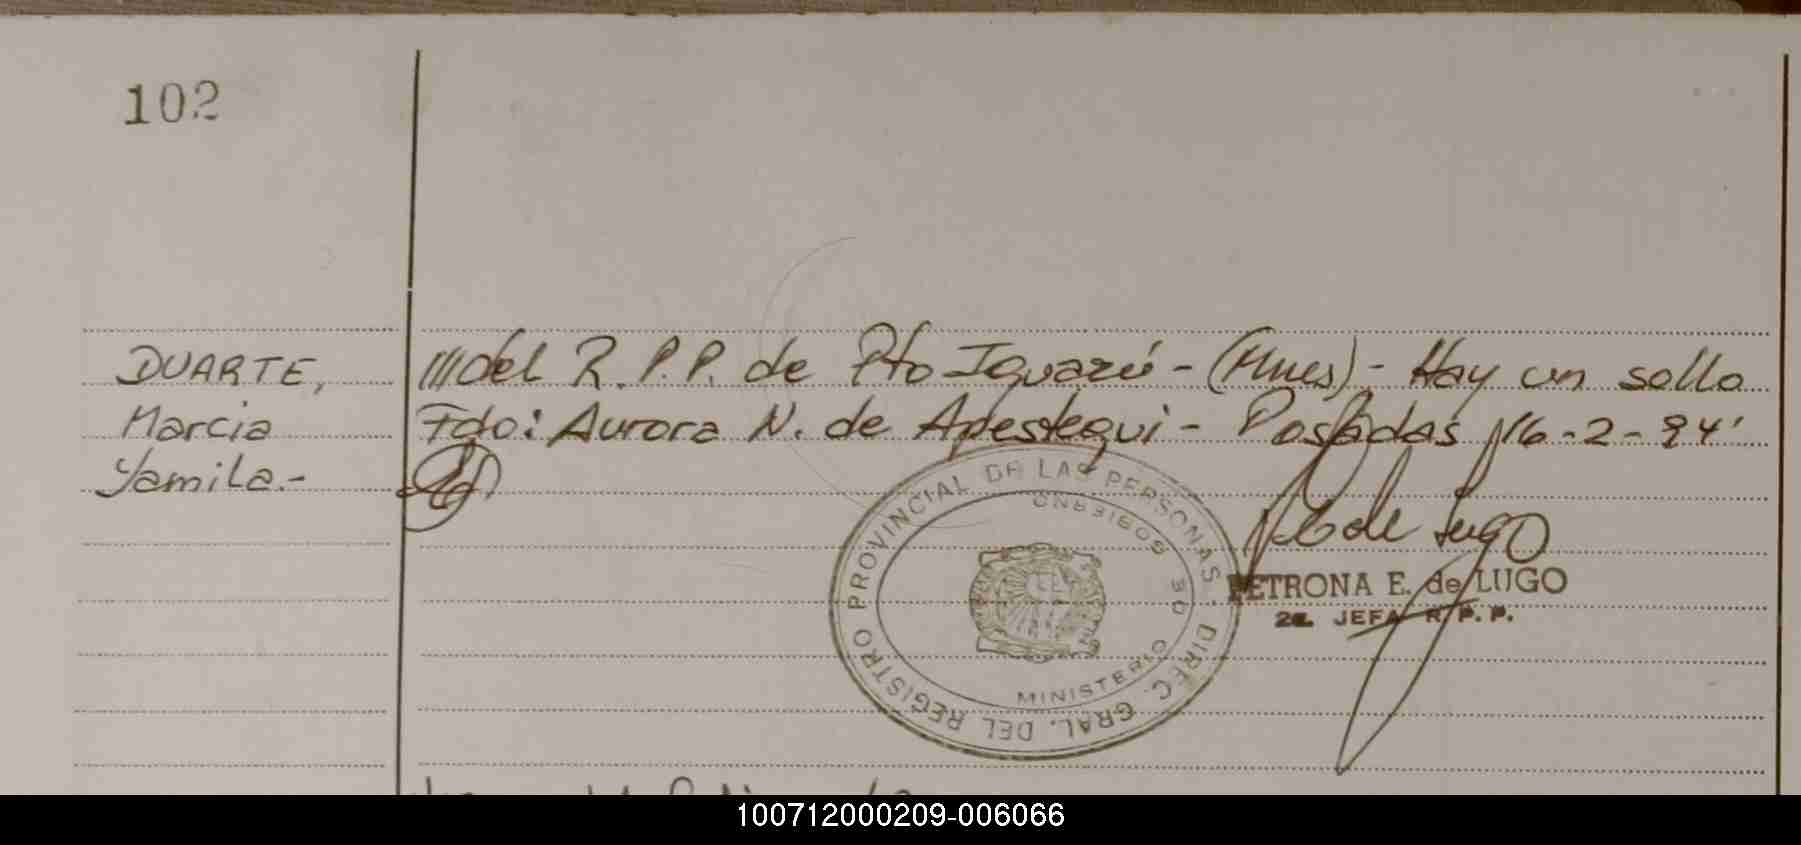 102
DUARTE,
Marcia
Yamila.-
///del R.P.P. de Pto Iguazú - (Mnes) - Hay un sello
Fdo: Aurora N. de Apestegui - Posadas, 16-2-94'
DIREC. GRAL. DEL REGISTRO PROVINCIAL DE LAS PERSONAS
MINISTERIO DE GOBIERNO
PETRONA E. de LUGO
JEFA R.P.P.
100712000209-006066